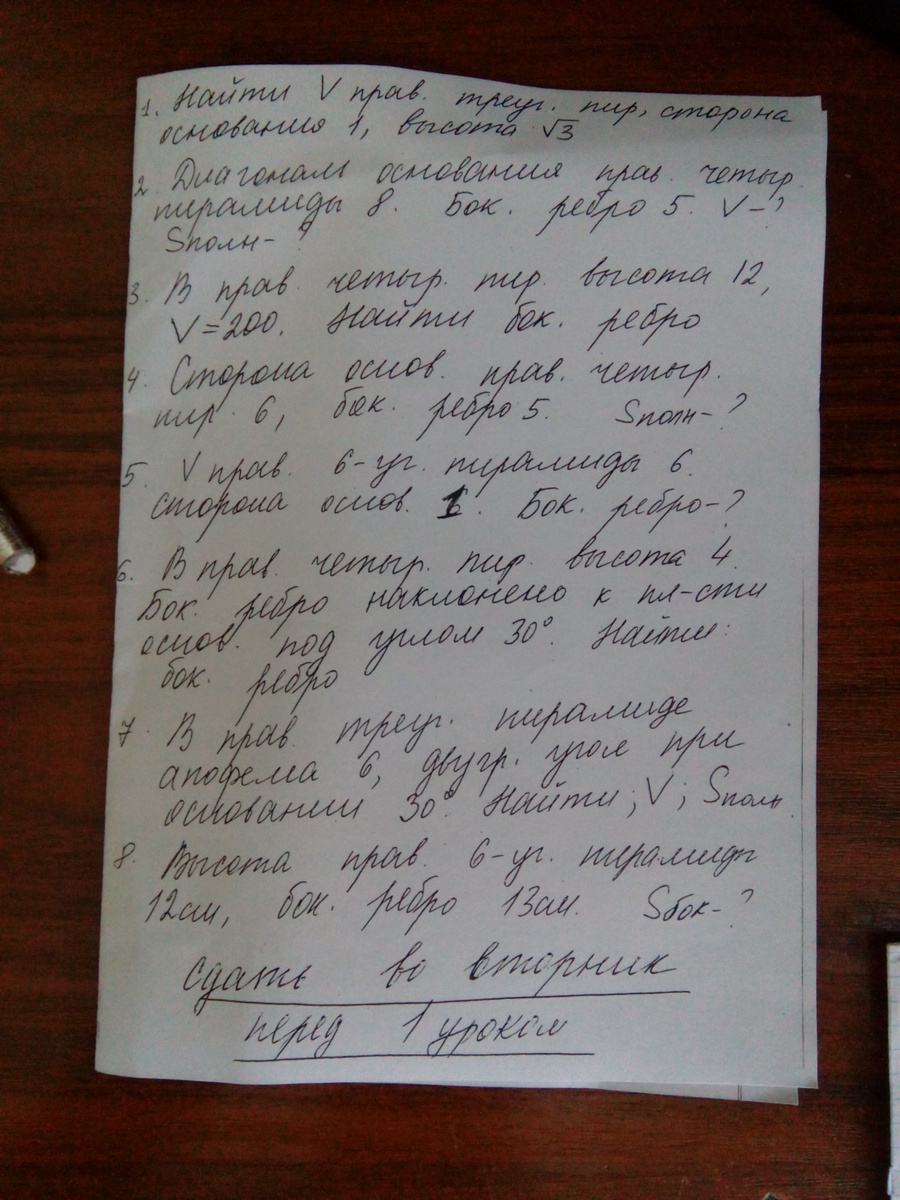 1. Найти V прав. треуг. пир, сторона
основания 1, высота √3
2. Диагональ основания прав. четыр.
пирамиды 8. Бок. ребро 5. V-?
Sполн-?
3. В прав. четыр. пир. высота 12,
V=200. Найти бок. ребро
4. Сторона основ. прав. четыр.
пир. 6, бок. ребро 5. Sполн-?
5. V прав. 6-уг. пирамиды 6.
сторона основ. 1. Бок. ребро-?
6. В прав. четыр. пир. высота 4.
Бок. ребро наклонено к пл-сти
основ. под углом 30°. Найти:
бок. ребро
7. В прав. треуг. пирамиде
апофема 6, двугр. угол при
основании 30°. Найти; V; Sполн
8. Высота прав. 6-уг. пирамиды
12см, бок. ребро 13см. Sбок-?
сдать во вторник
перед 1 уроком